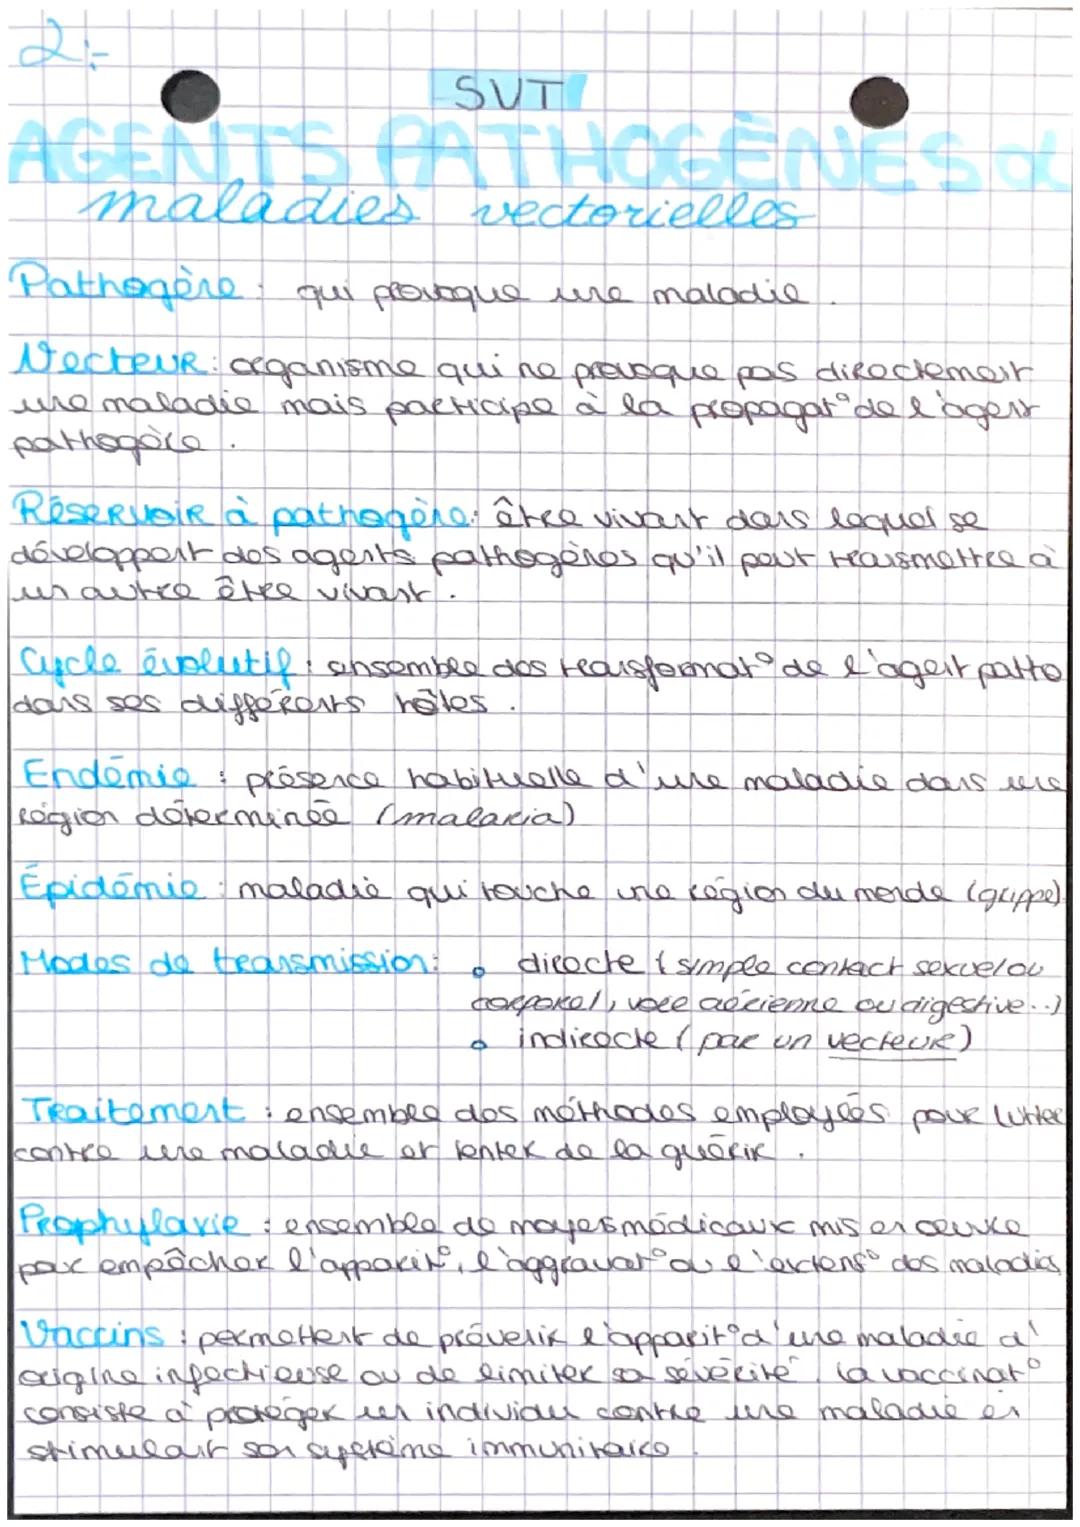 2:-
SVT
AGENTS PATHOGÈNES &
maladies vectorielles
Pathogène : qui provoque une maladie.
Vecteur : organisme qui ne provoque pas directement
une maladie mais participe à la propagat° de l'agent
pathogène.
Réservoir à pathogène : être vivant dans lequel se
développent des agents pathogènes qu'il peut transmettre à
un autre être vivant.
Cycle évolutif : ensemble des transformat° de l'agent patho
dans ses différents hôtes.
Endémie : présence habituelle d'une maladie dans une
région déterminée (malaria)
Épidémie : maladie qui touche une région du monde (grippe).
Modes de transmission : o directe (simple contact sexuel ou
corporel, voie aérienne ou digestive...)
o indirecte (par un vecteur)
Traitement : ensemble des méthodes employées pour lutter
contre une maladie et tenter de la guérir.
Prophylaxie : ensemble de moyens médicaux mis en oeuvre
par empêcher l'apparit°, l'aggravat° ou l'extens° des maladies
Vaccins : permettent de prévenir l'apparit° d'une maladie d'
origine infectieuse ou de limiter sa sévérité. La vaccinat°
consiste à protéger un individu contre une maladie en
stimulant son système immunitaire.